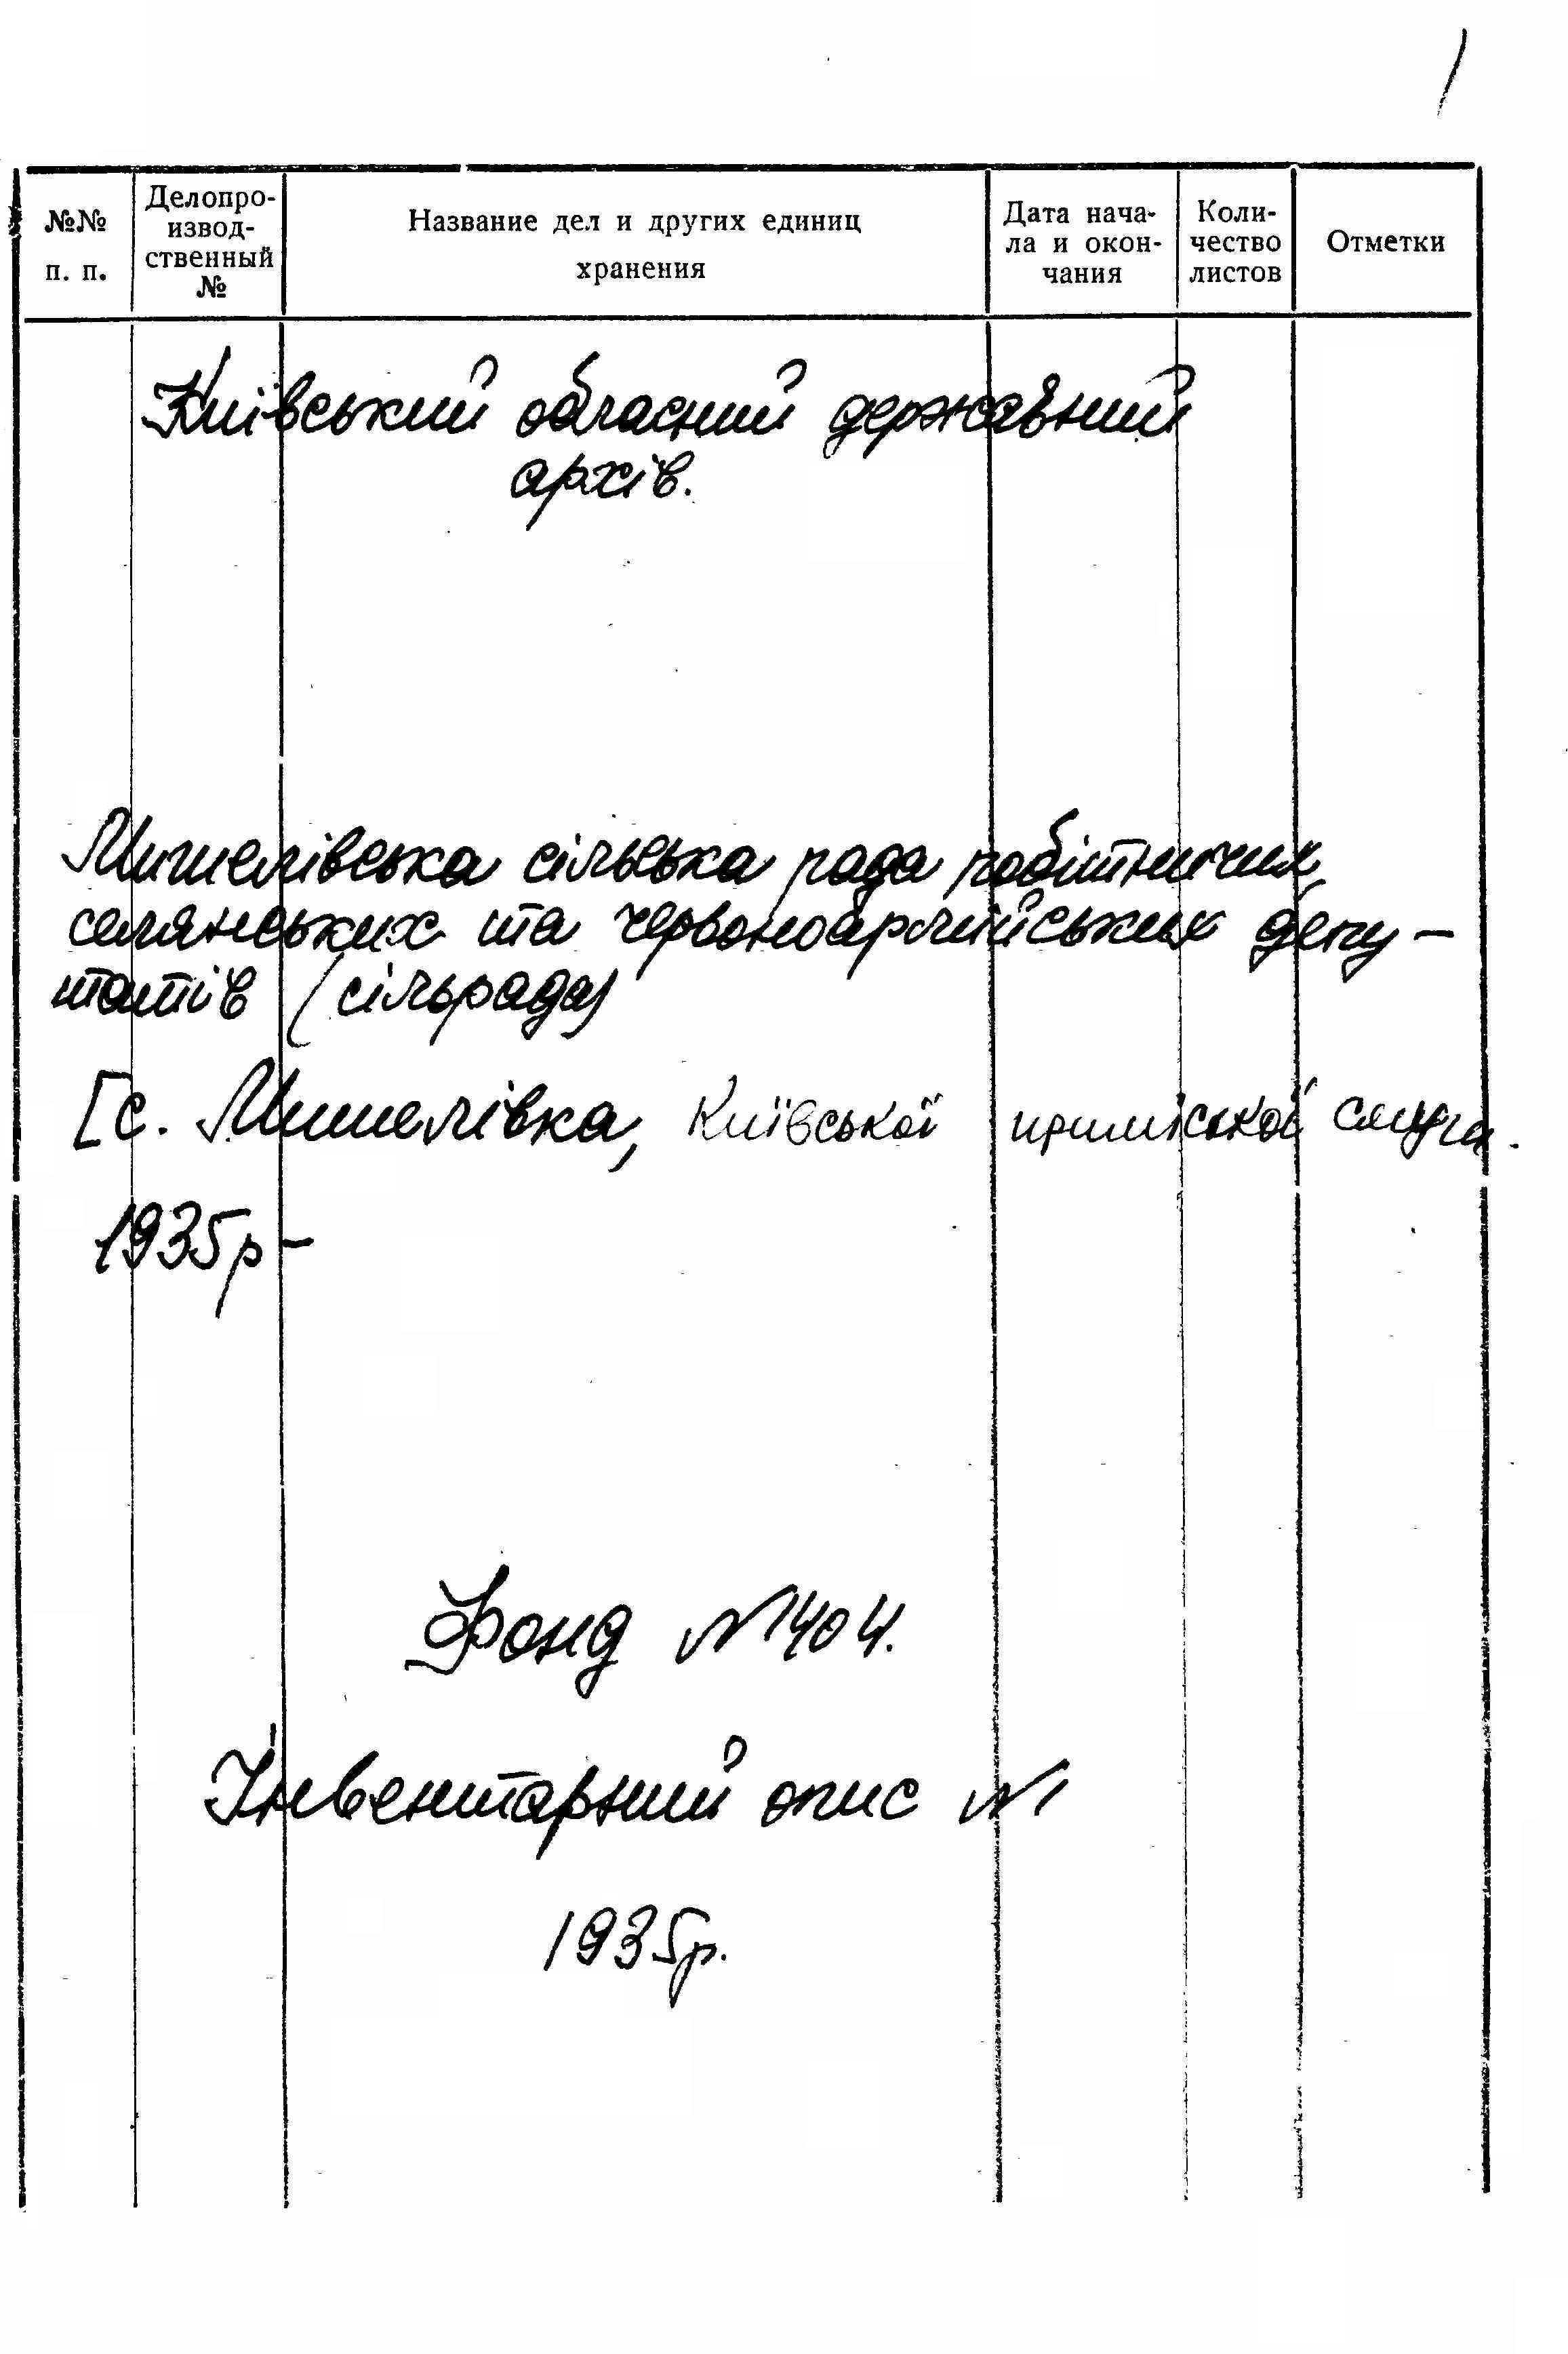 1
№№ п. п.
Делопро-
извод-
ственный
№
Название дел и других единиц
хранения
Дата нача-
ла и окон-
чания
Коли-
чество
листов
Отметки
Київський обласний державний
архів.
Мишелівська сільська рада робітничих,
селянських та червоноармійських депу-
татів (сільрада)
[с. Мишелівка, Київської приміської смуги.
1935р-
Фонд №1404.
Інвентарний опис №1
1935р.